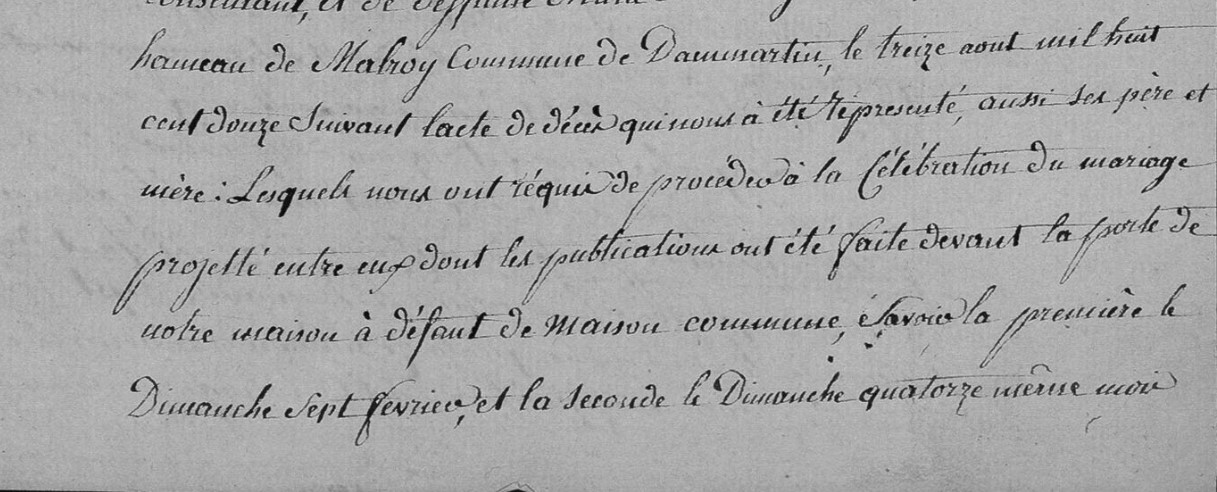 consentant, et de deffunte
hameau de Malroy Commune de Dammartin, le treize aout mil huit
cent douze Suivant lacte de décès qui nous à été représenté, aussi ses père et
mère : Lesquels nous ont réquis de procéder à la Célébration du mariage
projetté entre eux dont les publications ont été faite devant la porte de
notre maison à défaut de Maison commune, Savoir la première le
Dimanche Sept fevrier, et la seconde le Dimanche quatorze même mois